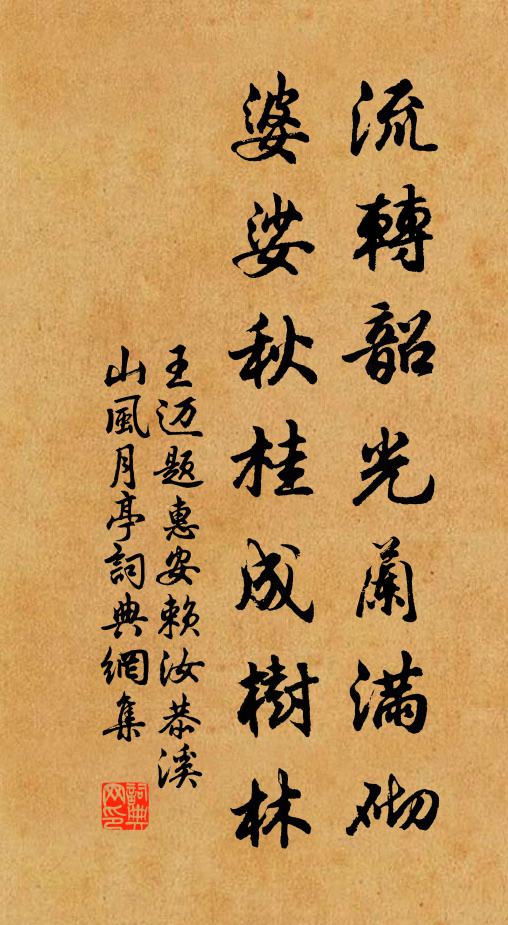 流轉韶光蘭滿砌
婆娑秋桂成樹林
王迈题惠安赖汝恭溪
山風月亭詞典網集
詞典网印